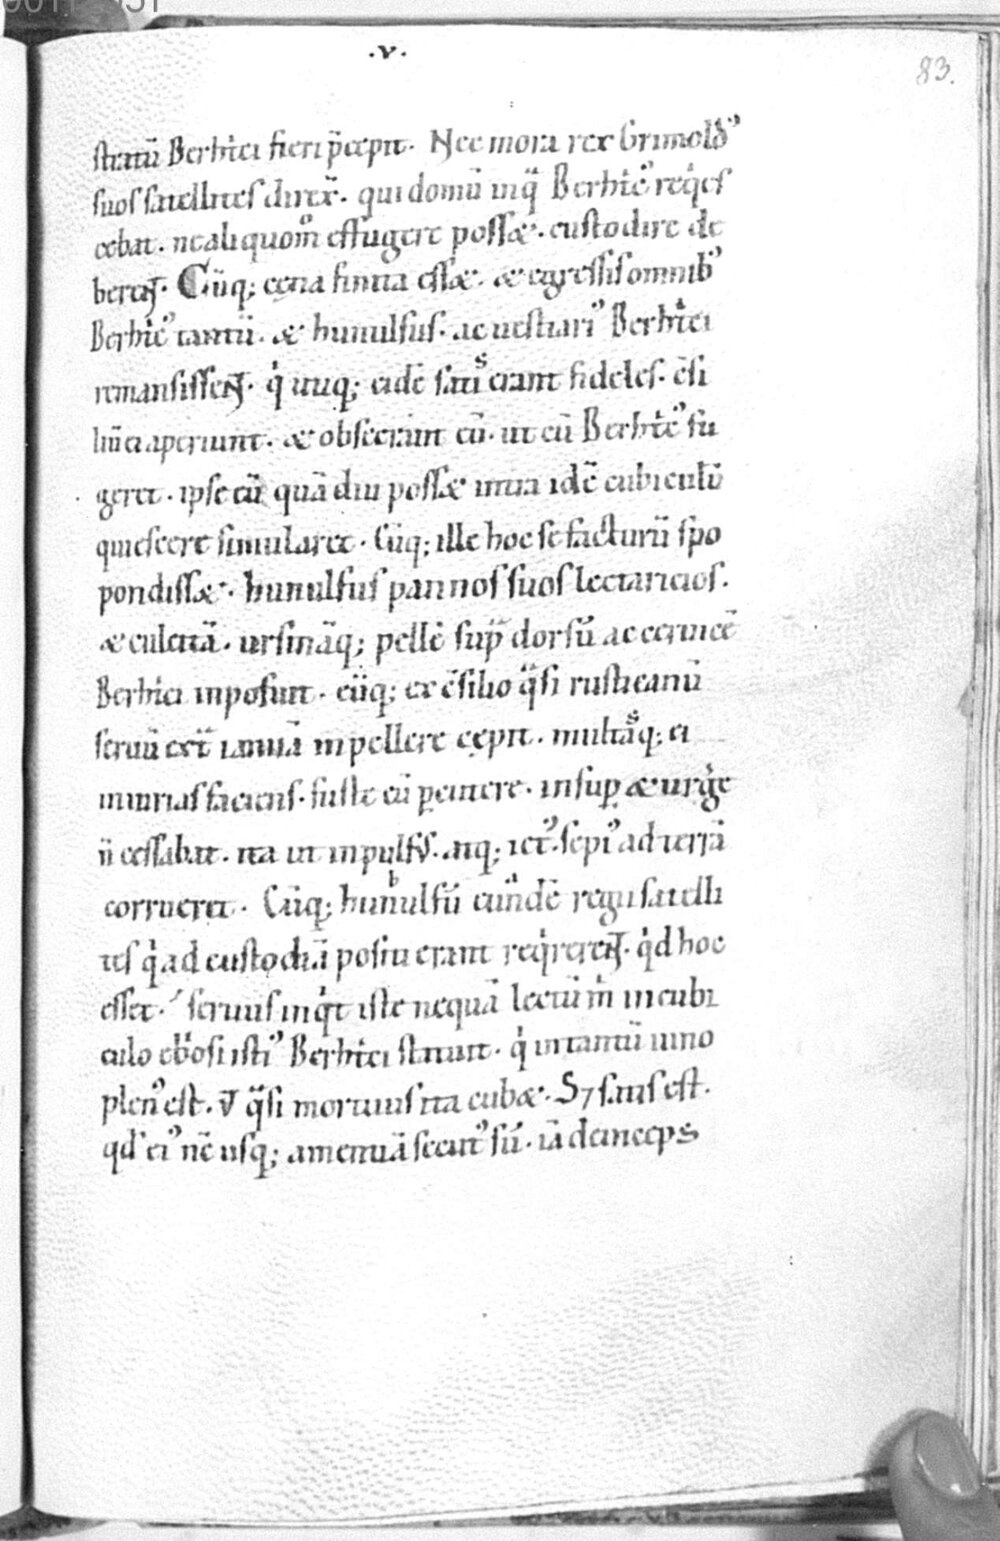 ·v·
83.
stratū Berhtici fieri p̄cepit · Nec mora rex Grimold᾽
suos satellites direx̄ · qui domū inq̄ Berhtic᾽ reqⁱes
cebat · ne aliquom̊ effugere possæ · custodire de
beren̄t · Cūq; cęna finita essæ · & egressis omnib᾽
Berhtic᾽ tantū · & hunulfus · ac uestiari᾽ Berhtici
remansissen̄t · qⁱ utiq; eidē satis erant fideles · c̄si
liū ei aperiunt · & obsecrant eū · ut cū Berhtic᾽ fu
geret · ipse eū quā diu possæ intra idē cubiculū
quiescere simularet · Cūq; ille hoc se facturū spo
pondissæ · hunulfus pannos suos lectaricios ·
& culcitā · ursināq; pellē sup̄ dorsū ac ceruicē
Berhtici inposuit · eūq; ex c̄silio qᵃsi rusticanū
seruū ext̄ ianuā inpellere cępit · multasq; ei
iniurias faciens · fuste eū ꝑcutere · insuꝑ & urgᵉre
n̄ cessabat · ita ut inpulsus · atq; ict᾽ · sepi᾽ ad terrā
corrueret · Cūq; hunulfū eundē regii satelli
tes qⁱ ad custodiā positi erant reqⁱreren̄t · qⁱd hoc
esset · seruus inqⁱt iste nequā lectū m̄ in cubi
culo ebⁱosi isti᾽ Berhtici statuit · qⁱ intantū uino
plen᾽ est · v̄ qᵃsi mortuus ita cubæ · S7 satis est ·
qđ ei᾽ nc̄ usq; amentiā secut᾽ sū · iā deinceps